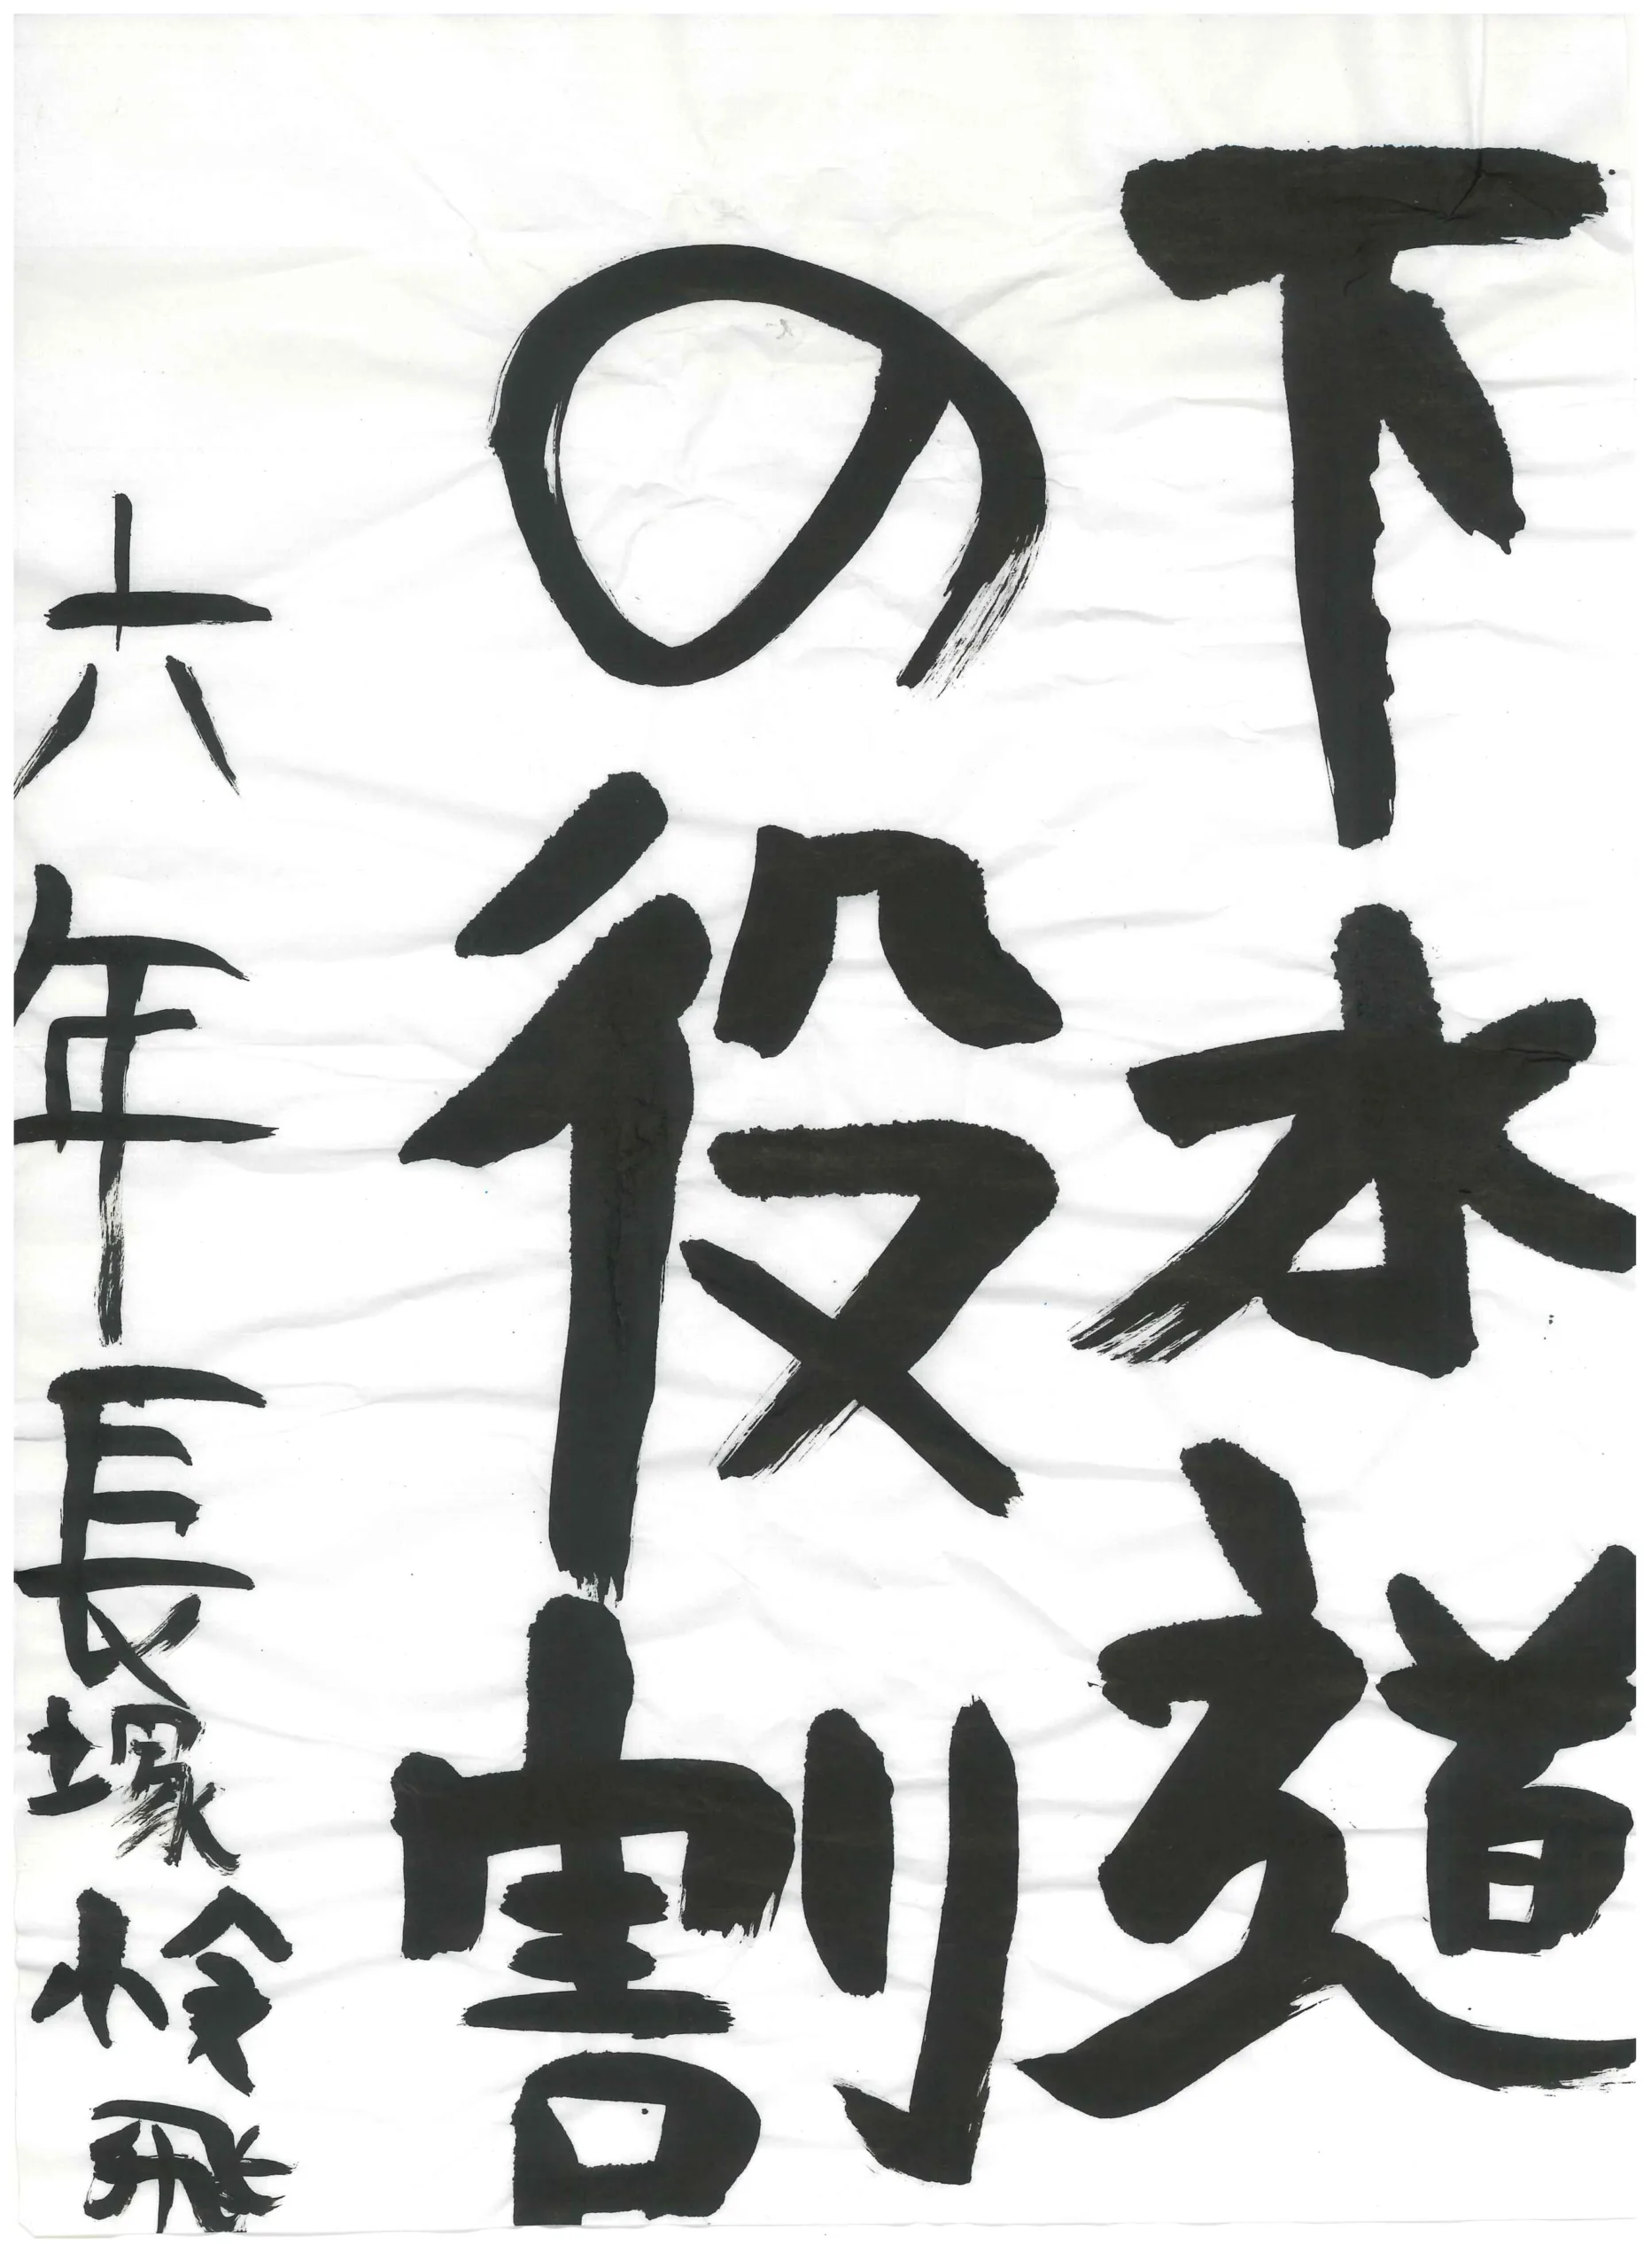 下水道
の役割
六年 長塚怜飛